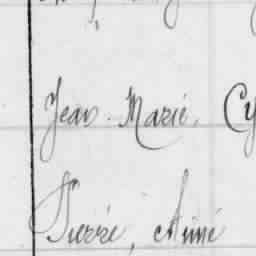 Jean-Marie, Cy
Pierre, Aimé